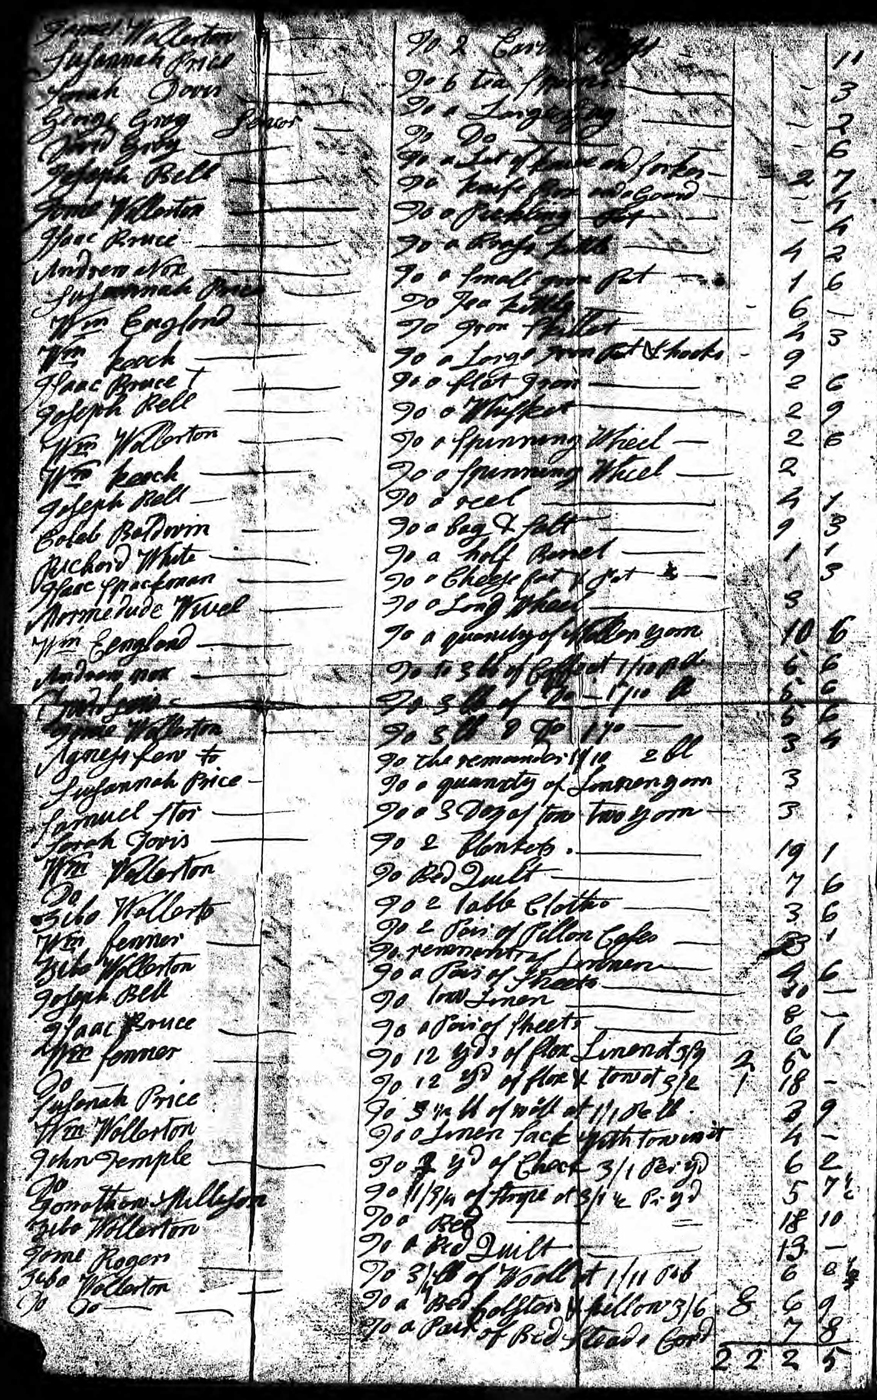 James Wollerton To 2 Earthen 11
Susannah Price To 6 tea Spoons - 3
Sarah Davis To a Large Jug - 2
George Gray Senior To Do - 6
David Gray To a Lot of knives and forkes 2 7
Joseph Bell To knife Box and a Gourd - 4
James Wollerton To a Pickling Pot - 4
Isaac Bruce To a Brass kettle 4 2
Andrew Nox To a Small Iron Pot 1 6
Susannah Price To Tea kettle 6 -
Wm England To Iron Skillet 2 3
Wm keech To a Large Iron Pot & hooks 9
Isaac Bruce To a flat Iron 2 6
Joseph Bell To a Whisket 2 9
Wm Wollerton To a Spinning Wheel 2 6
Wm keech To a Spinning Wheel 2
Joseph Bell To a reel 4 1
Caleb Baldwin To a bag & salt 9 3
Richard White To a half Barrel 1 1
Isaac Spackman To a Cheese fat & Pot 3
Mormedude Wivel To a Long Wheel 3
Wm Eengland To a quantity of Wollen yarn 10 6
Andrew nox To to 3 lb of at 1/10 6 6
To 3 lb of Do 1/10 6 6
James Wollerton To 3 lb Do 1/10 5 6
Agness few To the remander 1/10 2 lb 3 4
Susannah Price To a quantity of Linnen yarn 3
Samuel Stor To a 3 Doz of tow yarn 3
Sarah Davis To 2 blankets 19 1
Wm Wollerton To Bed Quilt 7 6
Do To 2 Table Cloths 3 6
Zeba Wollerto To 2 Pair of Pillow Cases 1
Wm fenner To remnents of Linnen 4 6
Zeba Wollerton To a Pair of Sheets 10 -
Joseph Bell To tow Linen 8 -
Isaac Bruce To a Pair of Sheets 6 1
Wm fenner To 12 yds of flax Linen at 3/9 2 5
Do To 12 yd of flax & tow at 3/2 1 18 -
Susanah Price To 3 1/4 lb of at 1/1 Pe lb 3 9
Wm Wollerton To a Linen Sack With tow in it 4 -
John Temple To 2 yd of Check 3/1 Per yd 6 2
Do To 1 3/4 of Stripe at 3/1 1/2 Pr yd 5 7 1/2
Jonathan Milleson To a Bed 18 10
Zeba Wollerton To a Bed Quilt 13 -
James Rogers To of Wooll at 1/11 6
Zeba Wollerton To a Bed bolster & pillow 3/6 8 6 9
Do Do To a Pair of Bed Steads Cord 7 8
22 2 5